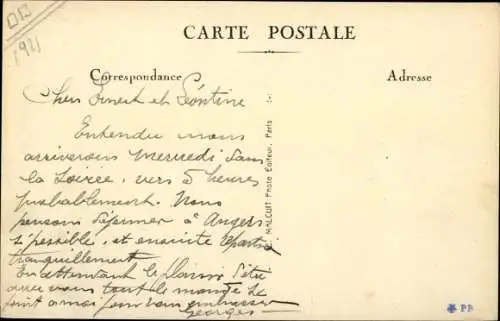 1921
CARTE POSTALE
Correspondance
Adresse
Cher Ernest et Léontine
Entendu nous
arriverons mercredi dans
la soirée, vers 5 heures
probablement. Nous
pensons déjeuner à Angers
si possible, et ensuite
tranquillement
En attendant le plaisir d'être
avec vous tout le monde se
joint a moi pour vous embrasser
Georges
MALCUIT Photo Editeur, Paris
PP